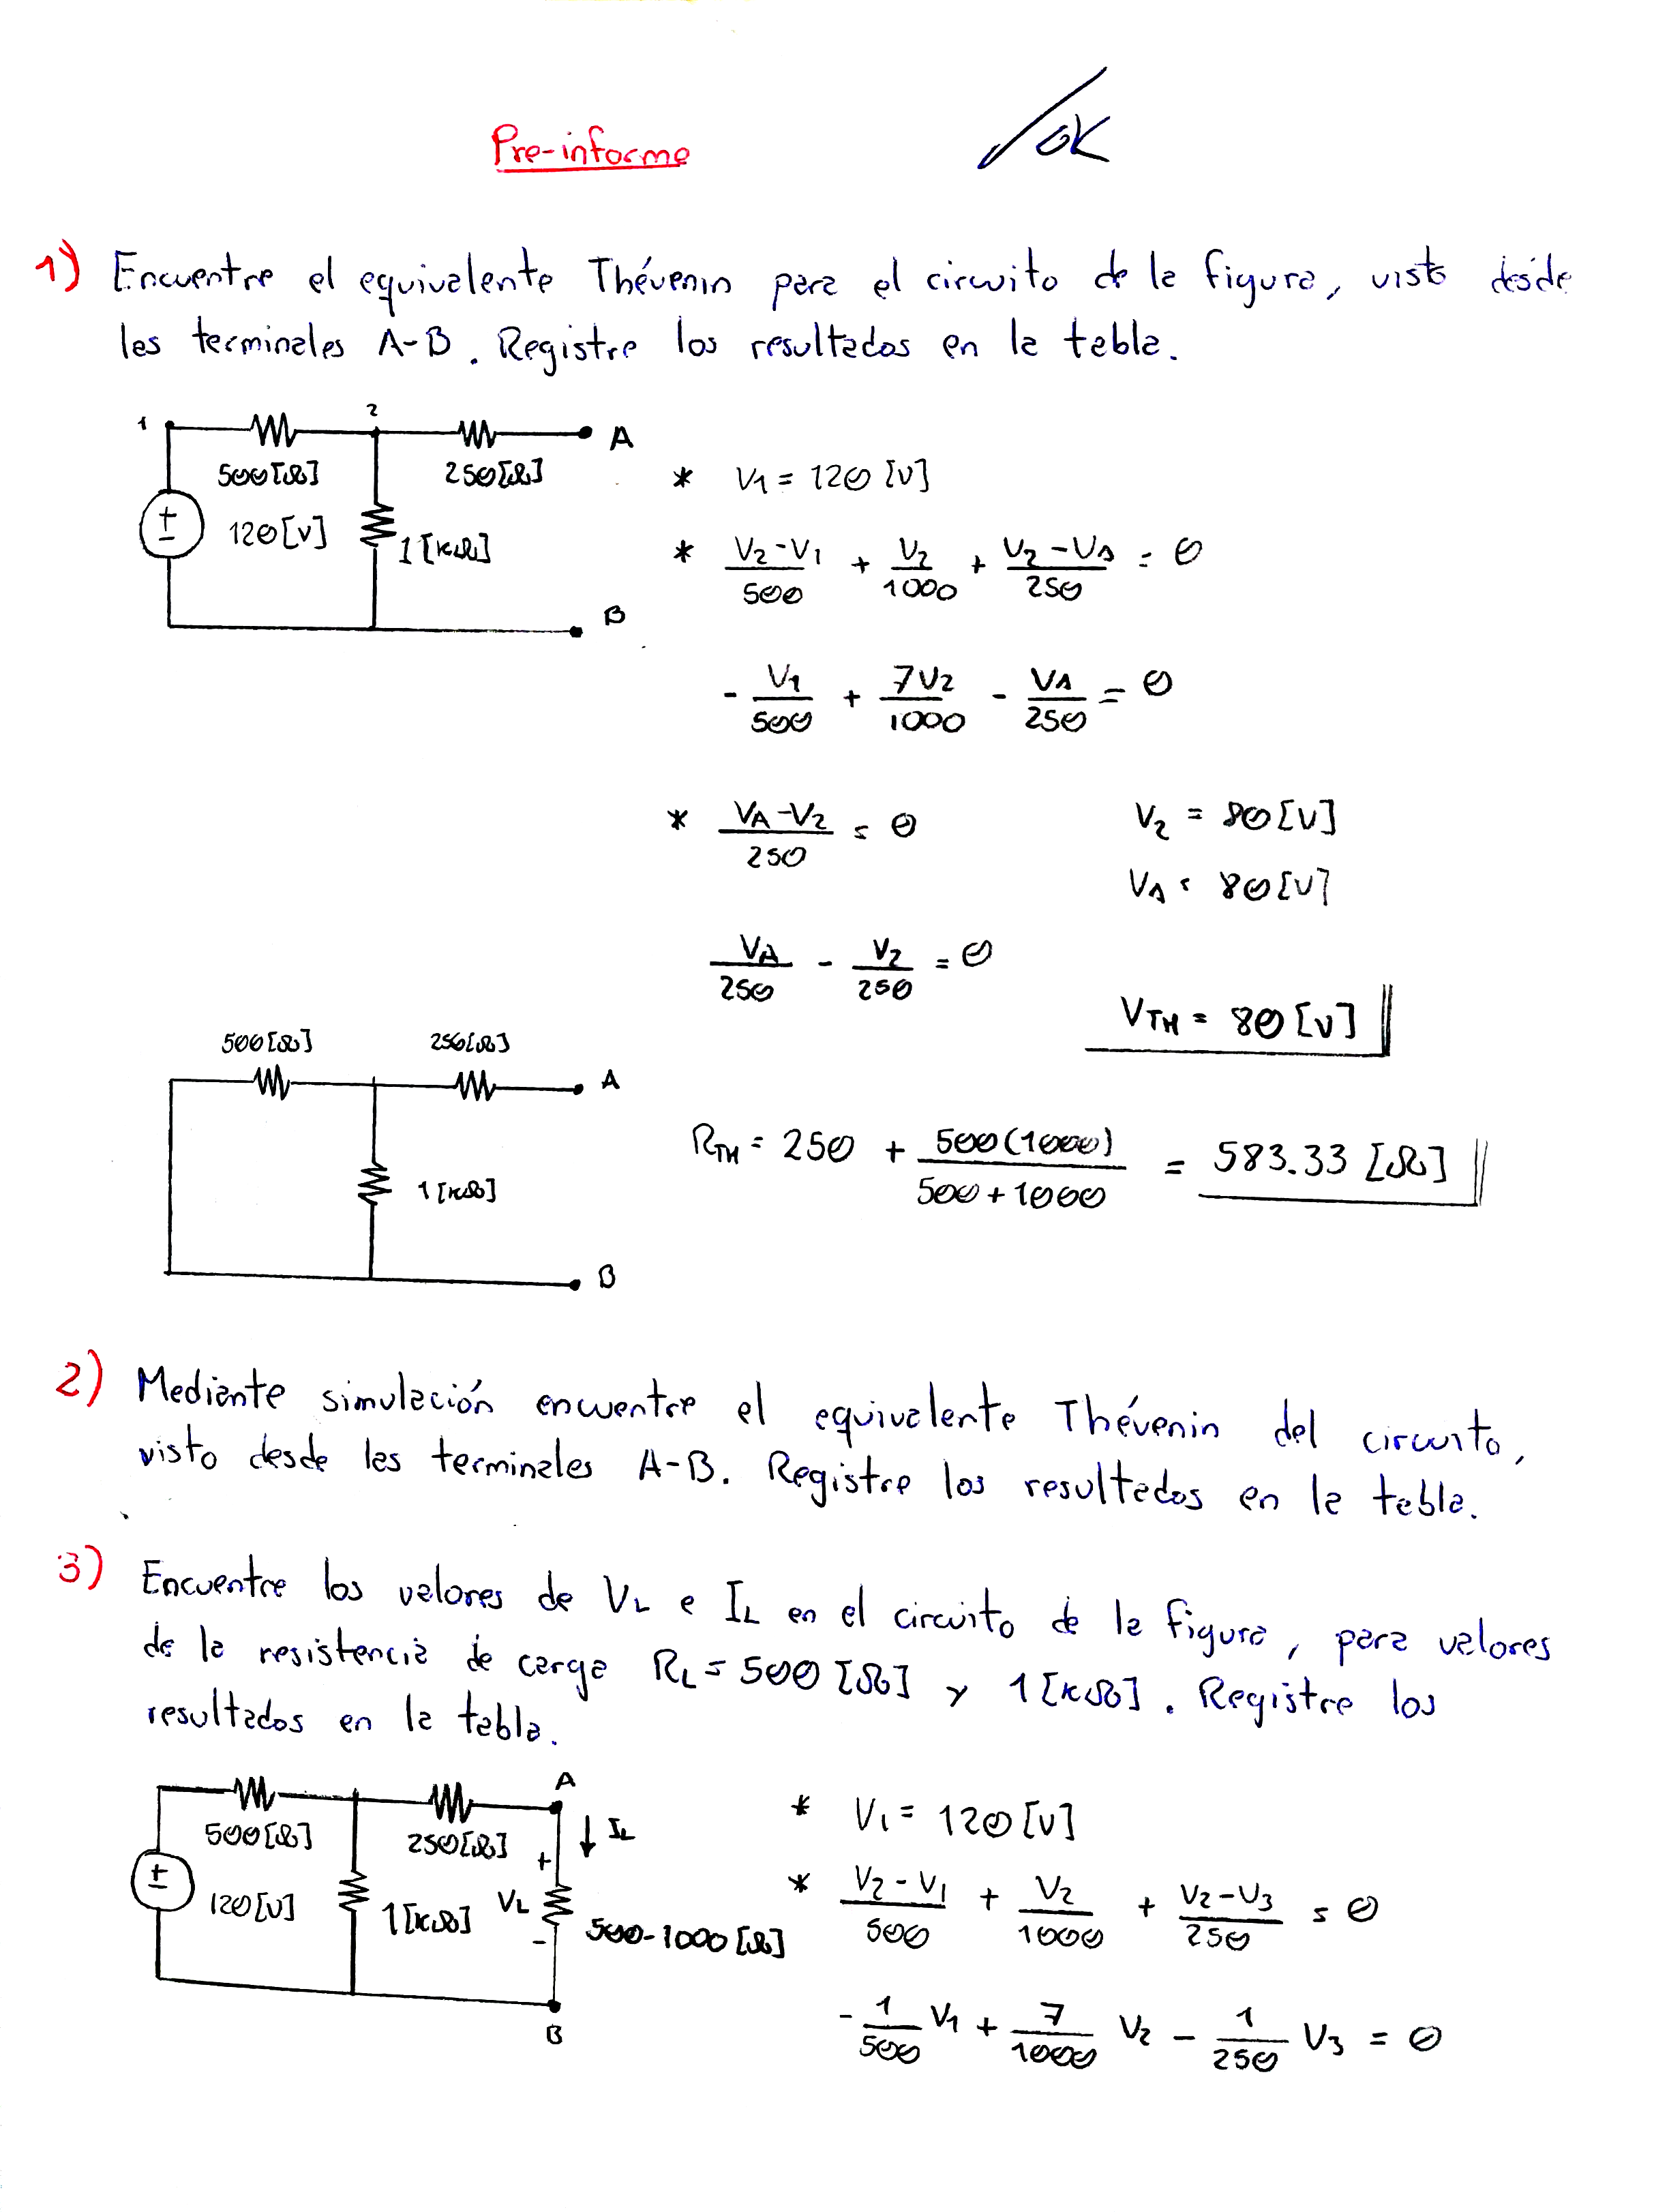 Pre-informe
OK
1) Encuentre el equivalente Thévenin para el circuito de la figura, visto desde
las terminales A-B. Registre los resultados en la tabla.
1
2
A
500[Ω]
250[Ω]
120[V]
1[kΩ]
B
* V1 = 120 [V]
* (V2-V1)/500 + V2/1000 + (V2-VA)/250 = 0
- V1/500 + 7V2/1000 - VA/250 = 0
* (VA-V2)/250 = 0
VA/250 - V2/250 = 0
V2 = 80[V]
VA = 80[V]
VTH = 80[V]
500[Ω]
250[Ω]
A
1[kΩ]
B
RTH = 250 + 500(1000)/(500+1000) = 583.33 [Ω]
2) Mediante simulación encuentre el equivalente Thévenin del circuito,
visto desde las terminales A-B. Registre los resultados en la tabla.
3) Encuentre los valores de VL e IL en el circuito de la figura, para valores
de la resistencia de carga RL = 500 [Ω] y 1[kΩ]. Registre los
resultados en la tabla.
A
500[Ω]
250[Ω]
IL
+
120[V]
1[kΩ]
VL
-
500-1000[Ω]
B
* V1 = 120[V]
* (V2-V1)/500 + V2/1000 + (V2-V3)/250 = 0
- 1/500 V1 + 7/1000 V2 - 1/250 V3 = 0